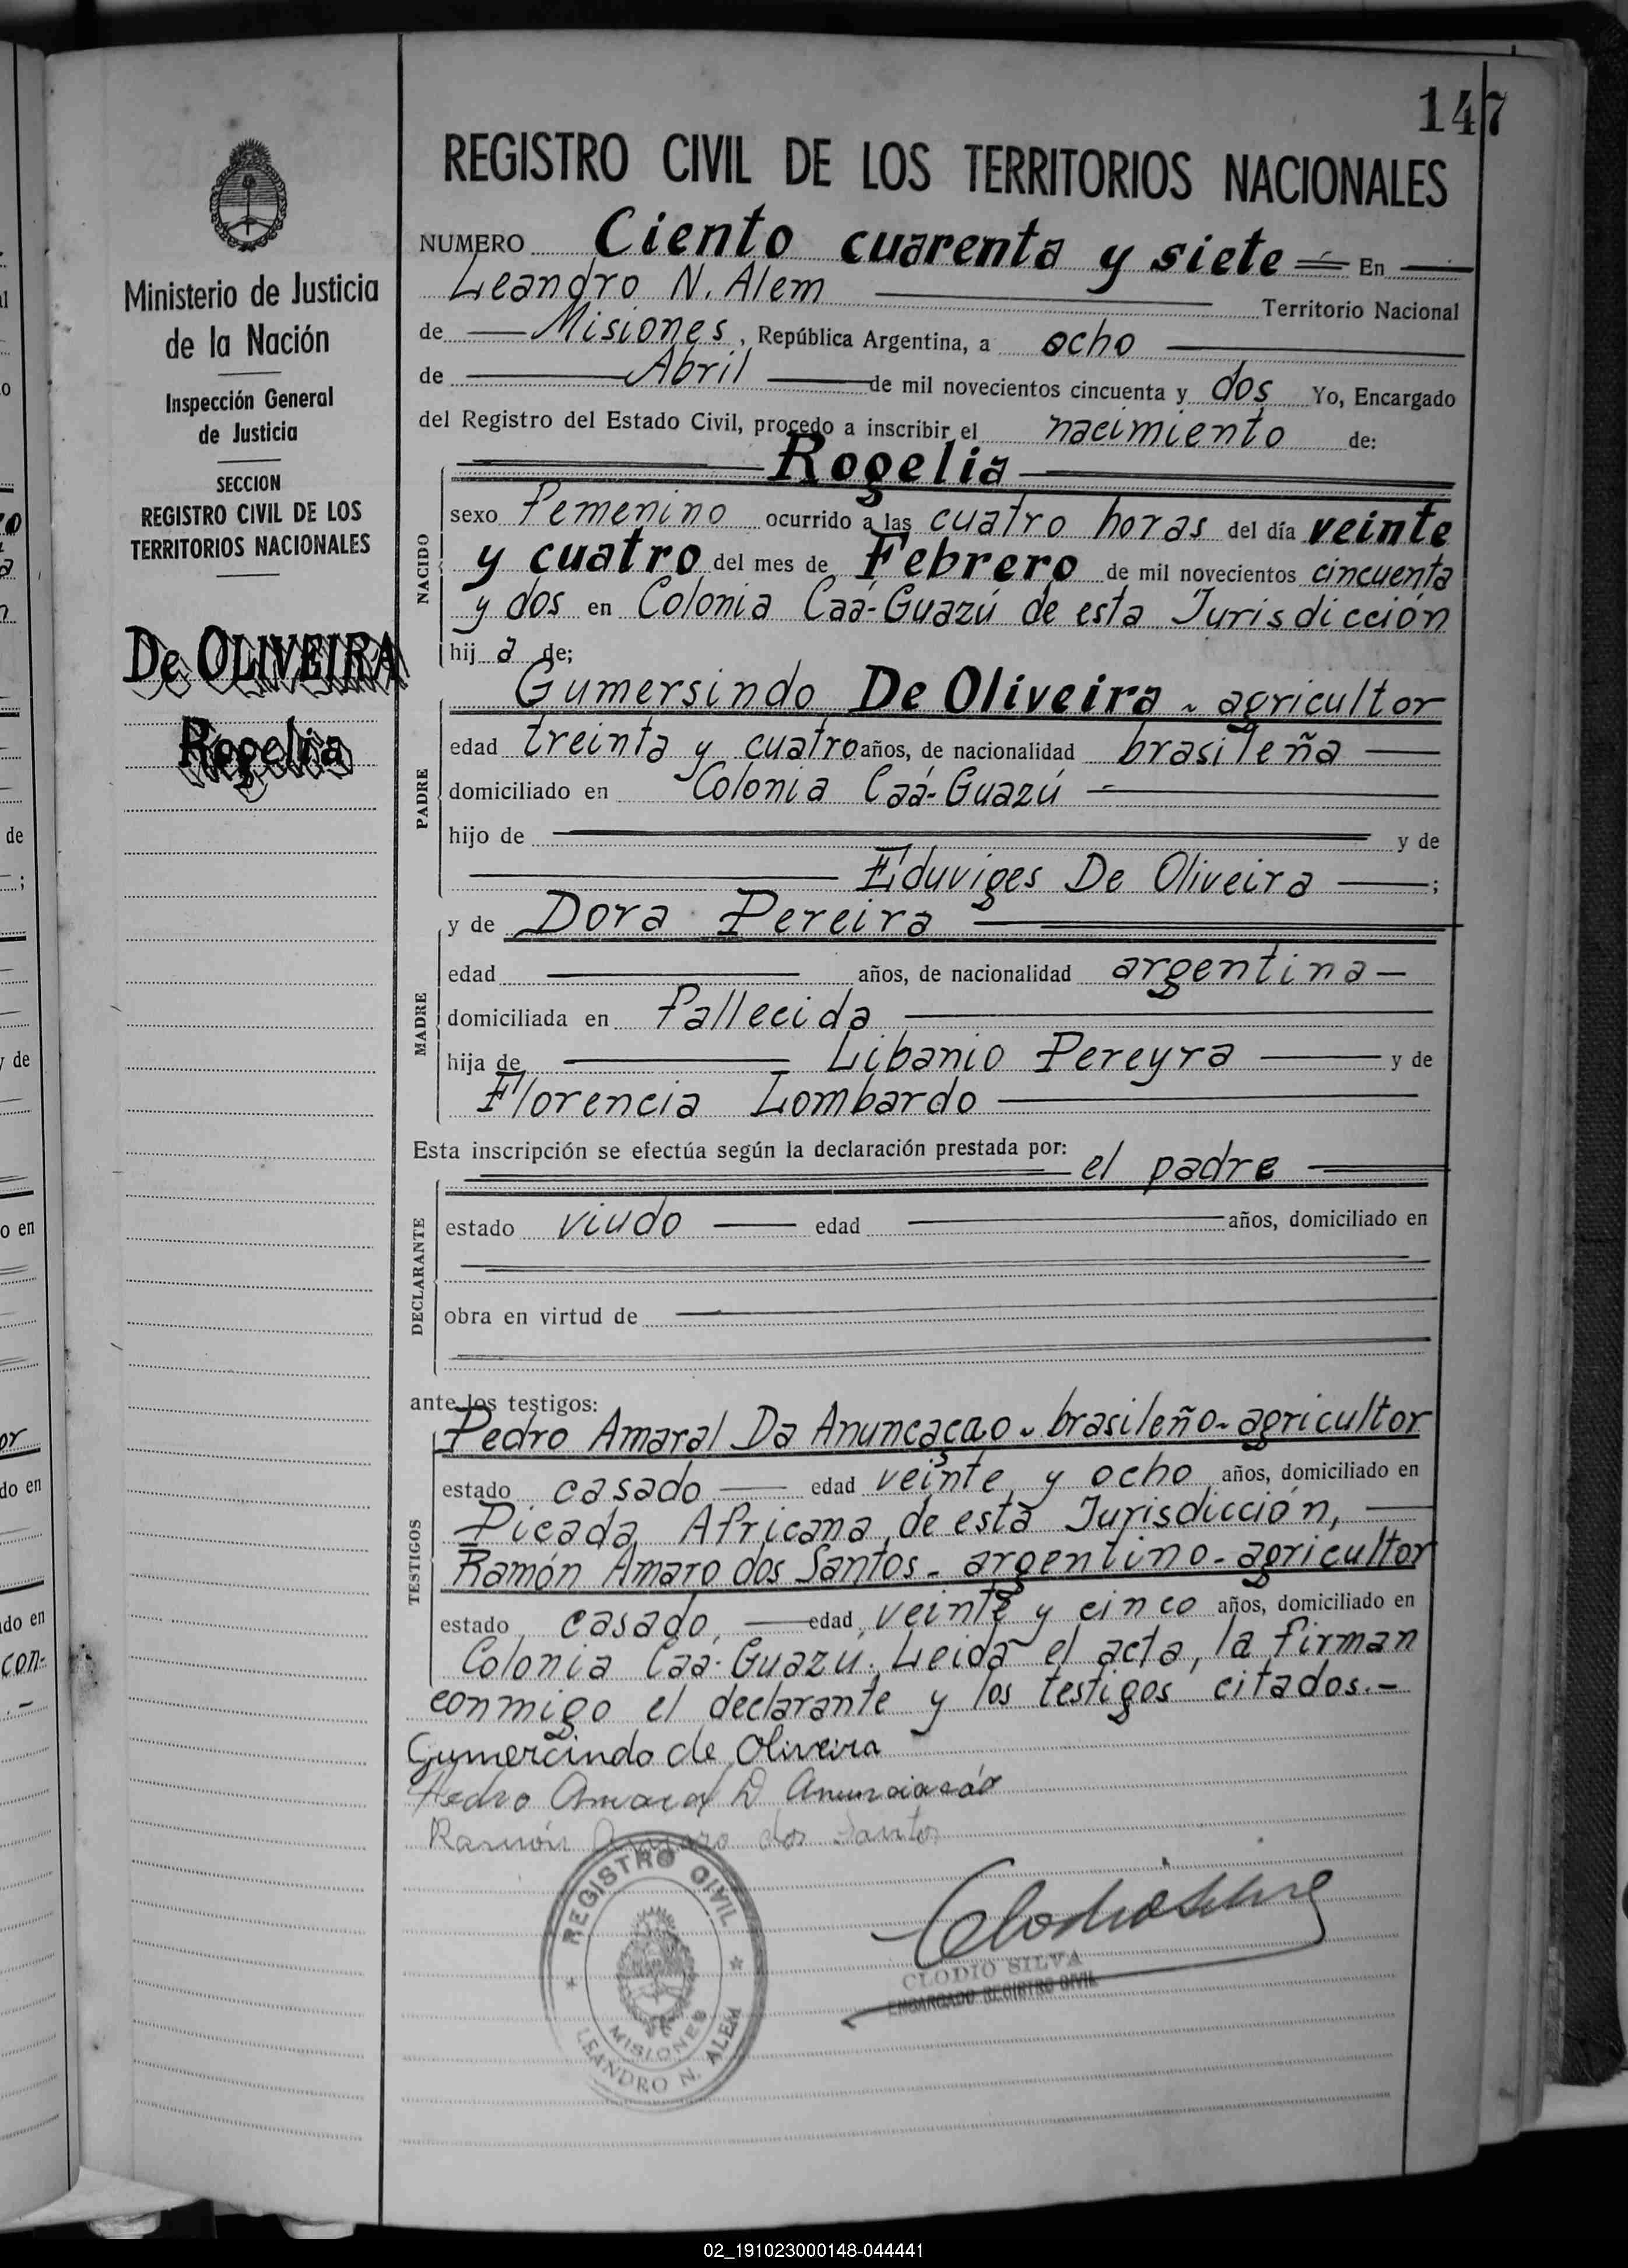 147
REGISTRO CIVIL DE LOS TERRITORIOS NACIONALES
Ministerio de Justicia
de la Nación
Inspección General
de Justicia
SECCION
REGISTRO CIVIL DE LOS
TERRITORIOS NACIONALES
De OLIVEIRA
Rogelia
NUMERO Ciento cuarenta y siete En
Leandro N. Alem Territorio Nacional
de Misiones, República Argentina, a ocho
de Abril de mil novecientos cincuenta y dos Yo, Encargado
del Registro del Estado Civil, procedo a inscribir el nacimiento de:
Rogelia
NACIDO
sexo Femenino ocurrido a las cuatro horas del día veinte
y cuatro del mes de Febrero de mil novecientos cincuenta
y dos en Colonia Caá-Guazú de esta Jurisdicción
hij a de;
PADRE
Gumersindo De Oliveira - agricultor
edad treinta y cuatro años, de nacionalidad brasileña
domiciliado en Colonia Caá-Guazú
hijo de y de
Eduviges De Oliveira ;
MADRE
y de Dora Pereira
edad años, de nacionalidad argentina
domiciliada en fallecida
hija de Libanio Pereyra y de
Florencia Lombardo
Esta inscripción se efectúa según la declaración prestada por:
el padre
DECLARANTE
estado viudo edad años, domiciliado en
obra en virtud de
ante los testigos:
TESTIGOS
Pedro Amaral Da Anuncaçao - brasileño - agricultor
estado casado edad veinte y ocho años, domiciliado en
Picada Africana de esta Jurisdicción,
Ramón Amaro dos Santos - argentino - agricultor
estado casado, edad veinte y cinco años, domiciliado en
Colonia Caá-Guazú. Leida el acta, la firman
conmigo el declarante y los testigos citados.-
Gumercindo de Oliveira
Pedro Amaral D Anunciacáo
Ramón Amaro dos Santos
REGISTRO CIVIL
MISIONES
LEANDRO N. ALEM
Clodio Silva
CLODIO SILVA
ENCARGADO REGISTRO CIVIL
02_191023000148-044441